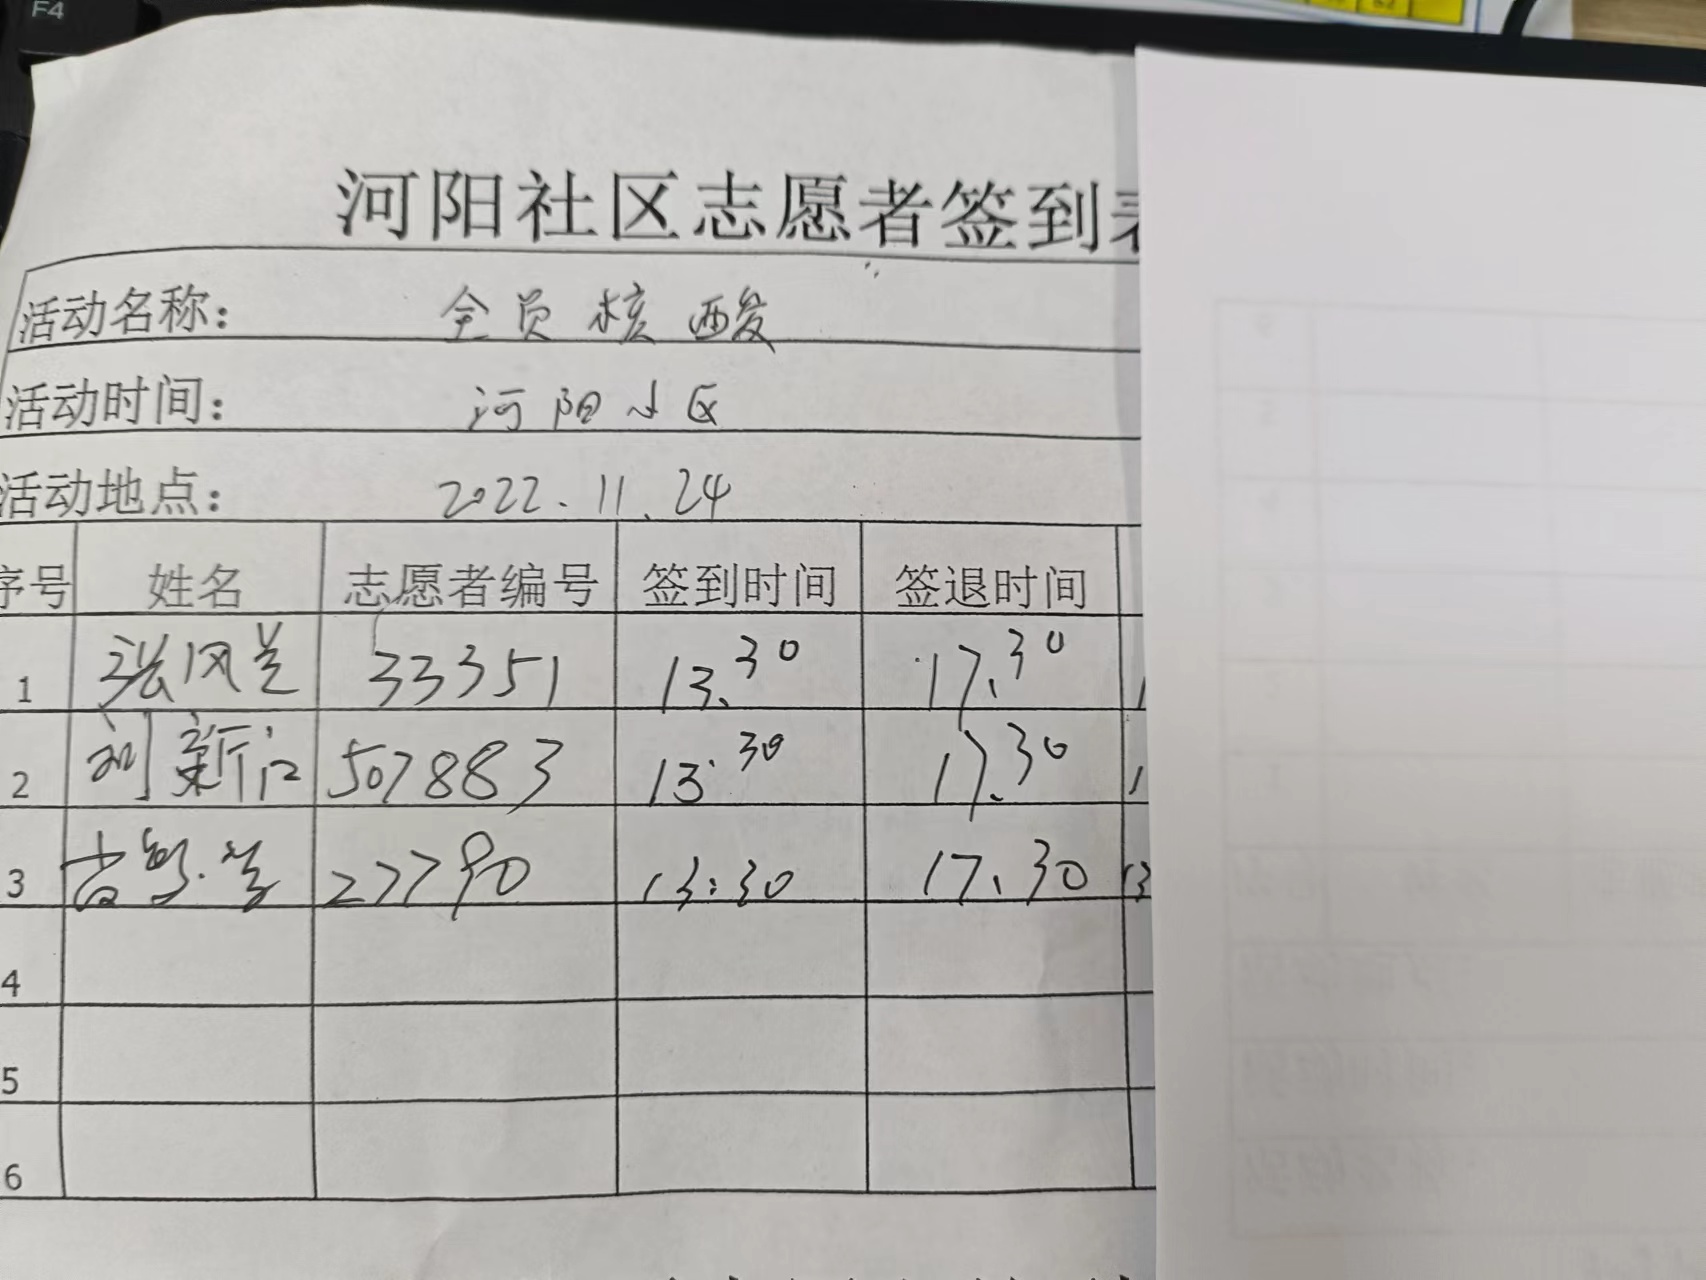 F4
河阳社区志愿者签到表
活动名称: 全员核酸
活动时间: 河阳小区
活动地点: 2022.11.24
序号 姓名 志愿者编号 签到时间 签退时间
1 张风兰 33351 13.30 17.30
2 刘新江 507883 13:30 17.30
3 27790 13:30 17.30
4
5
6